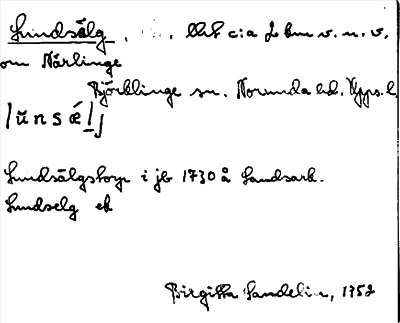 Lundsälg, . . . . c:a 2 km v.n.v.
om Närlinge
Björklinge sn. Norunda hd. Upps.l.
Lundsälgstorp i jb 1730 å Landsark.
Lundselg ek
Birgitta Sandelin, 1952